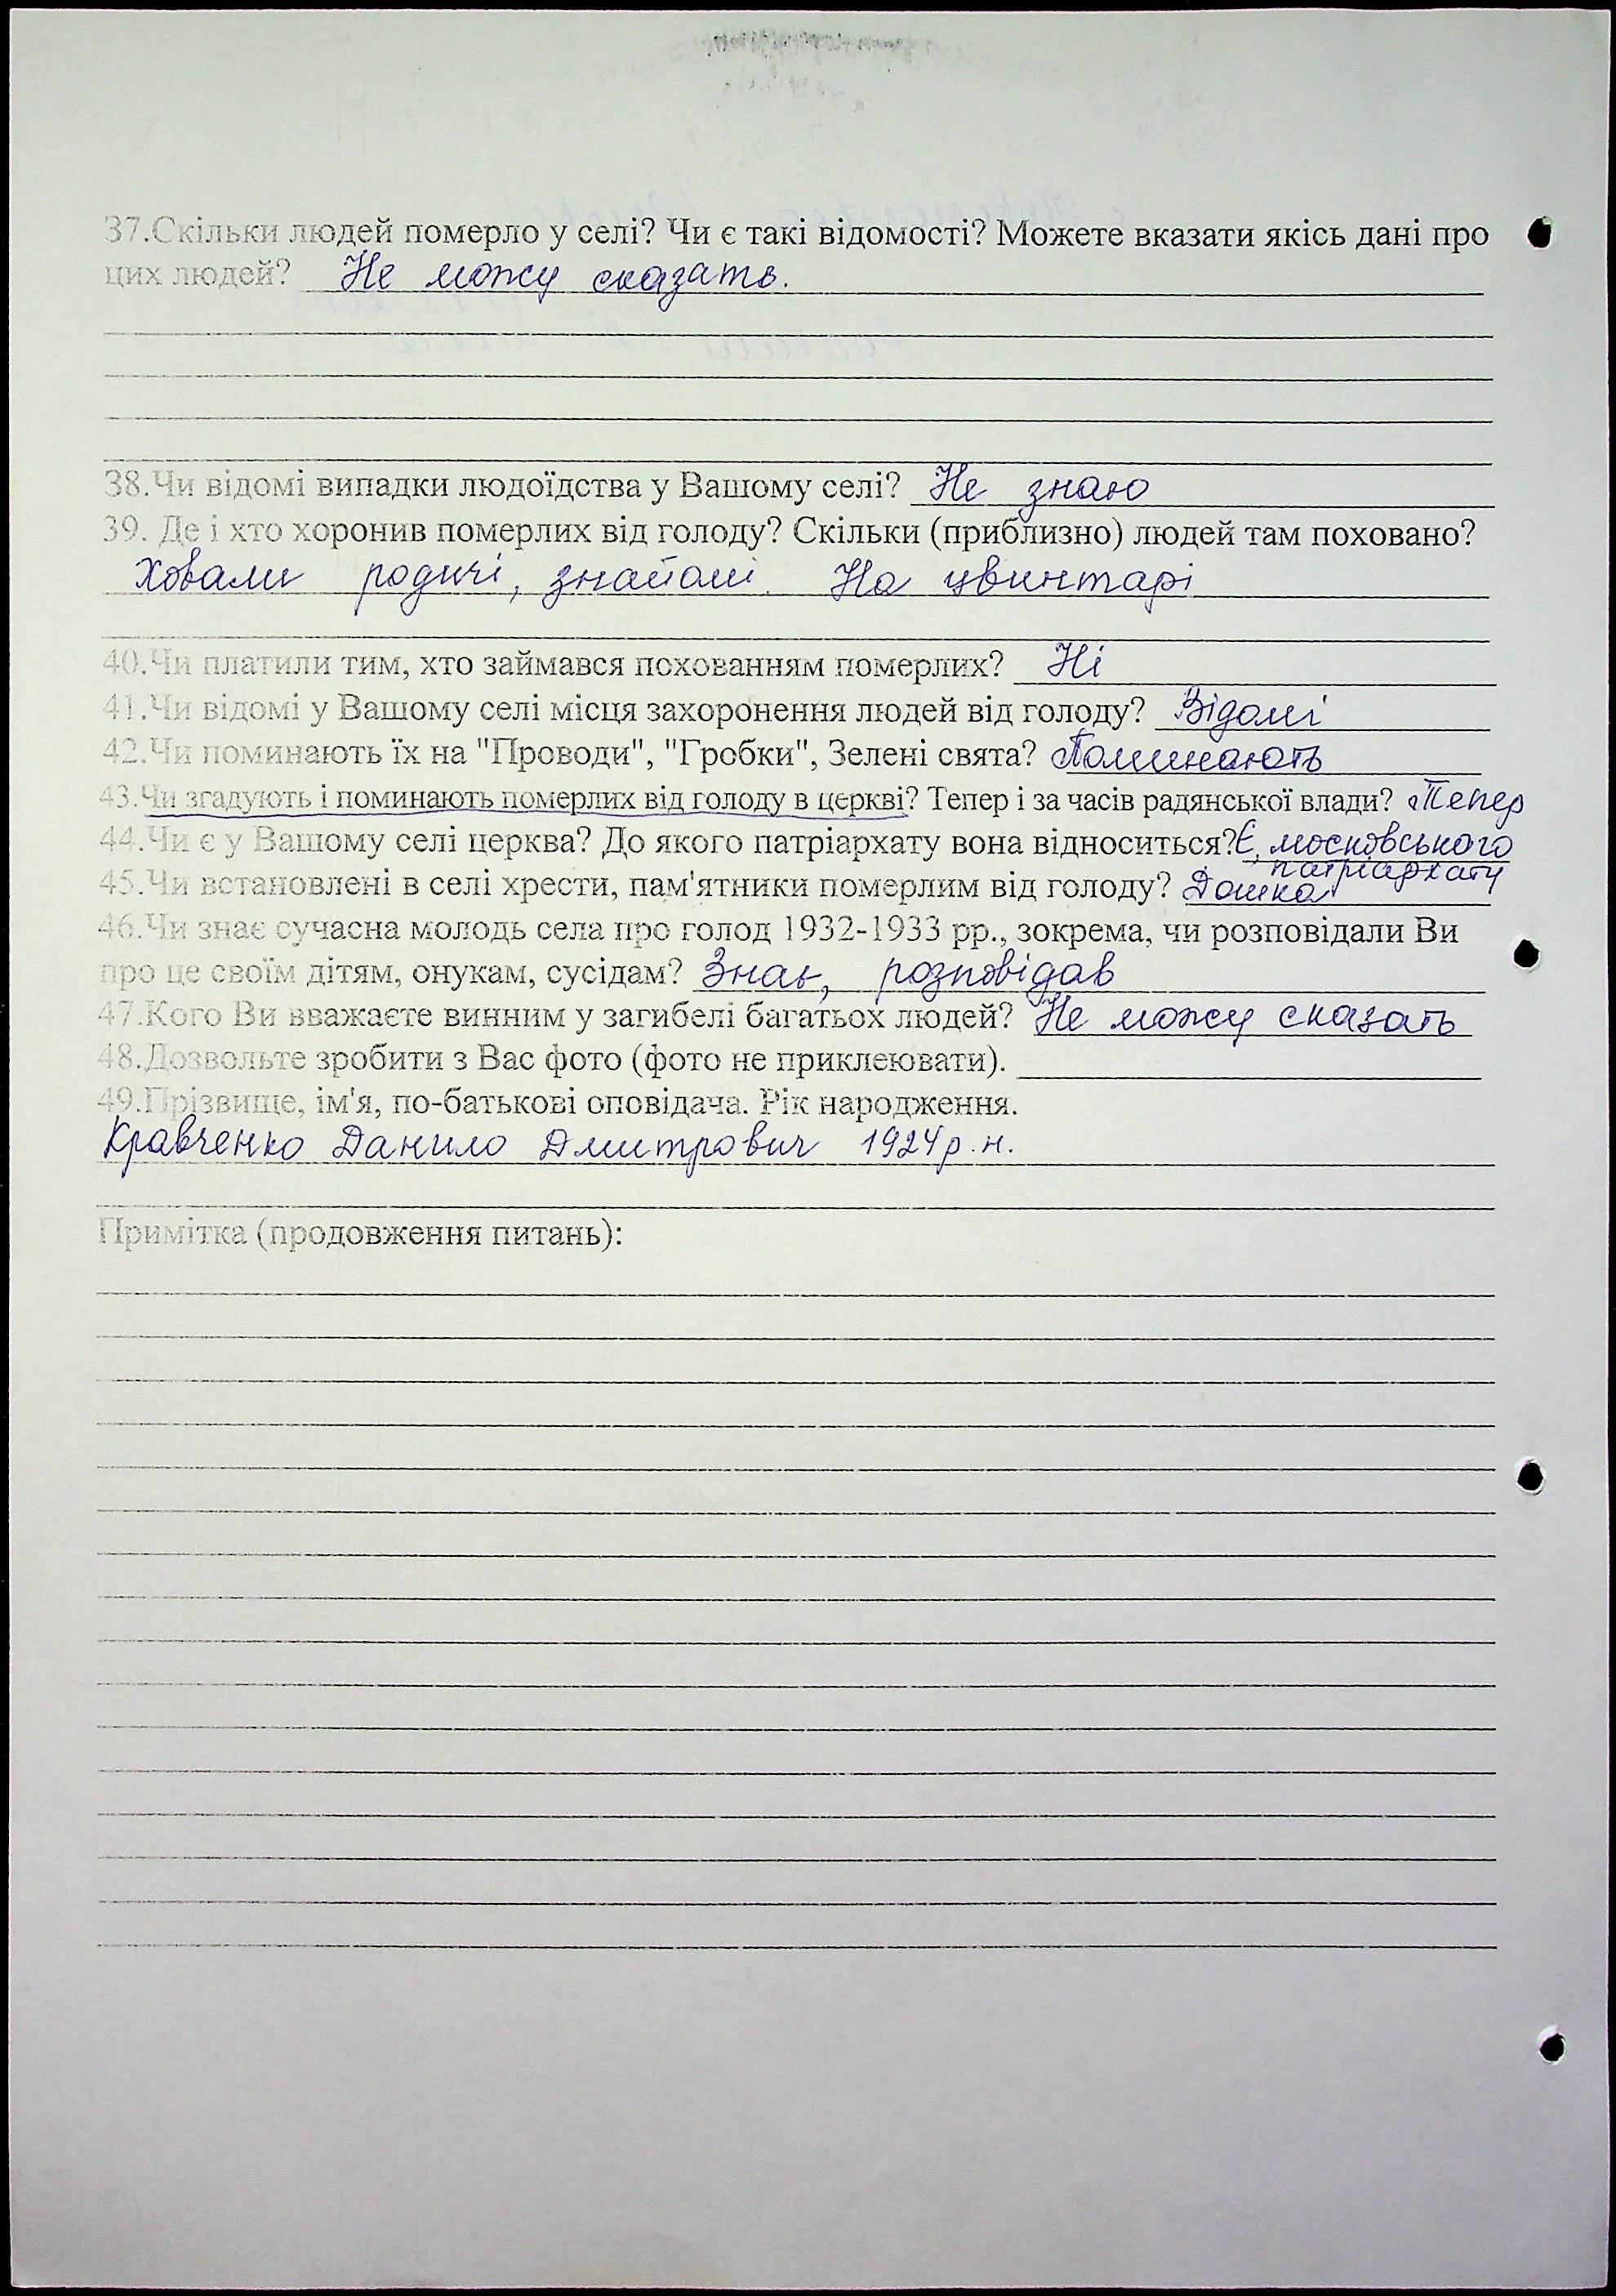 37.Скільки людей померло у селі? Чи є такі відомості? Можете вказати якісь дані про
цих людей? Не можу сказать.
38.Чи відомі випадки людоїдства у Вашому селі? Не знаю
39. Де і хто хоронив померлих від голоду? Скільки (приблизно) людей там поховано?
Ховали родичі, знайомі. На цвинтарі
40.Чи платили тим, хто займався похованням померлих? Ні
41.Чи відомі у Вашому селі місця захоронення людей від голоду? Відомі
42.Чи поминають їх на "Проводи", "Гробки", Зелені свята? Поминають
43.Чи згадують і поминають померлих від голоду в церкві? Тепер і за часів радянської влади? Тепер
44.Чи є у Вашому селі церква? До якого патріархату вона відноситься? Є, московського
патріархату
45.Чи встановлені в селі хрести, пам'ятники померлим від голоду? Дошка
46.Чи знає сучасна молодь села про голод 1932-1933 рр., зокрема, чи розповідали Ви
про це своїм дітям, онукам, сусідам? Знає, розповідав
47.Кого Ви вважаєте винним у загибелі багатьох людей? Не можу сказать
48.Дозвольте зробити з Вас фото (фото не приклеювати).
49.Прізвище, ім'я, по-батькові оповідача. Рік народження.
Кравченко Данило Дмитрович 1924 р.н.
Примітка (продовження питань):